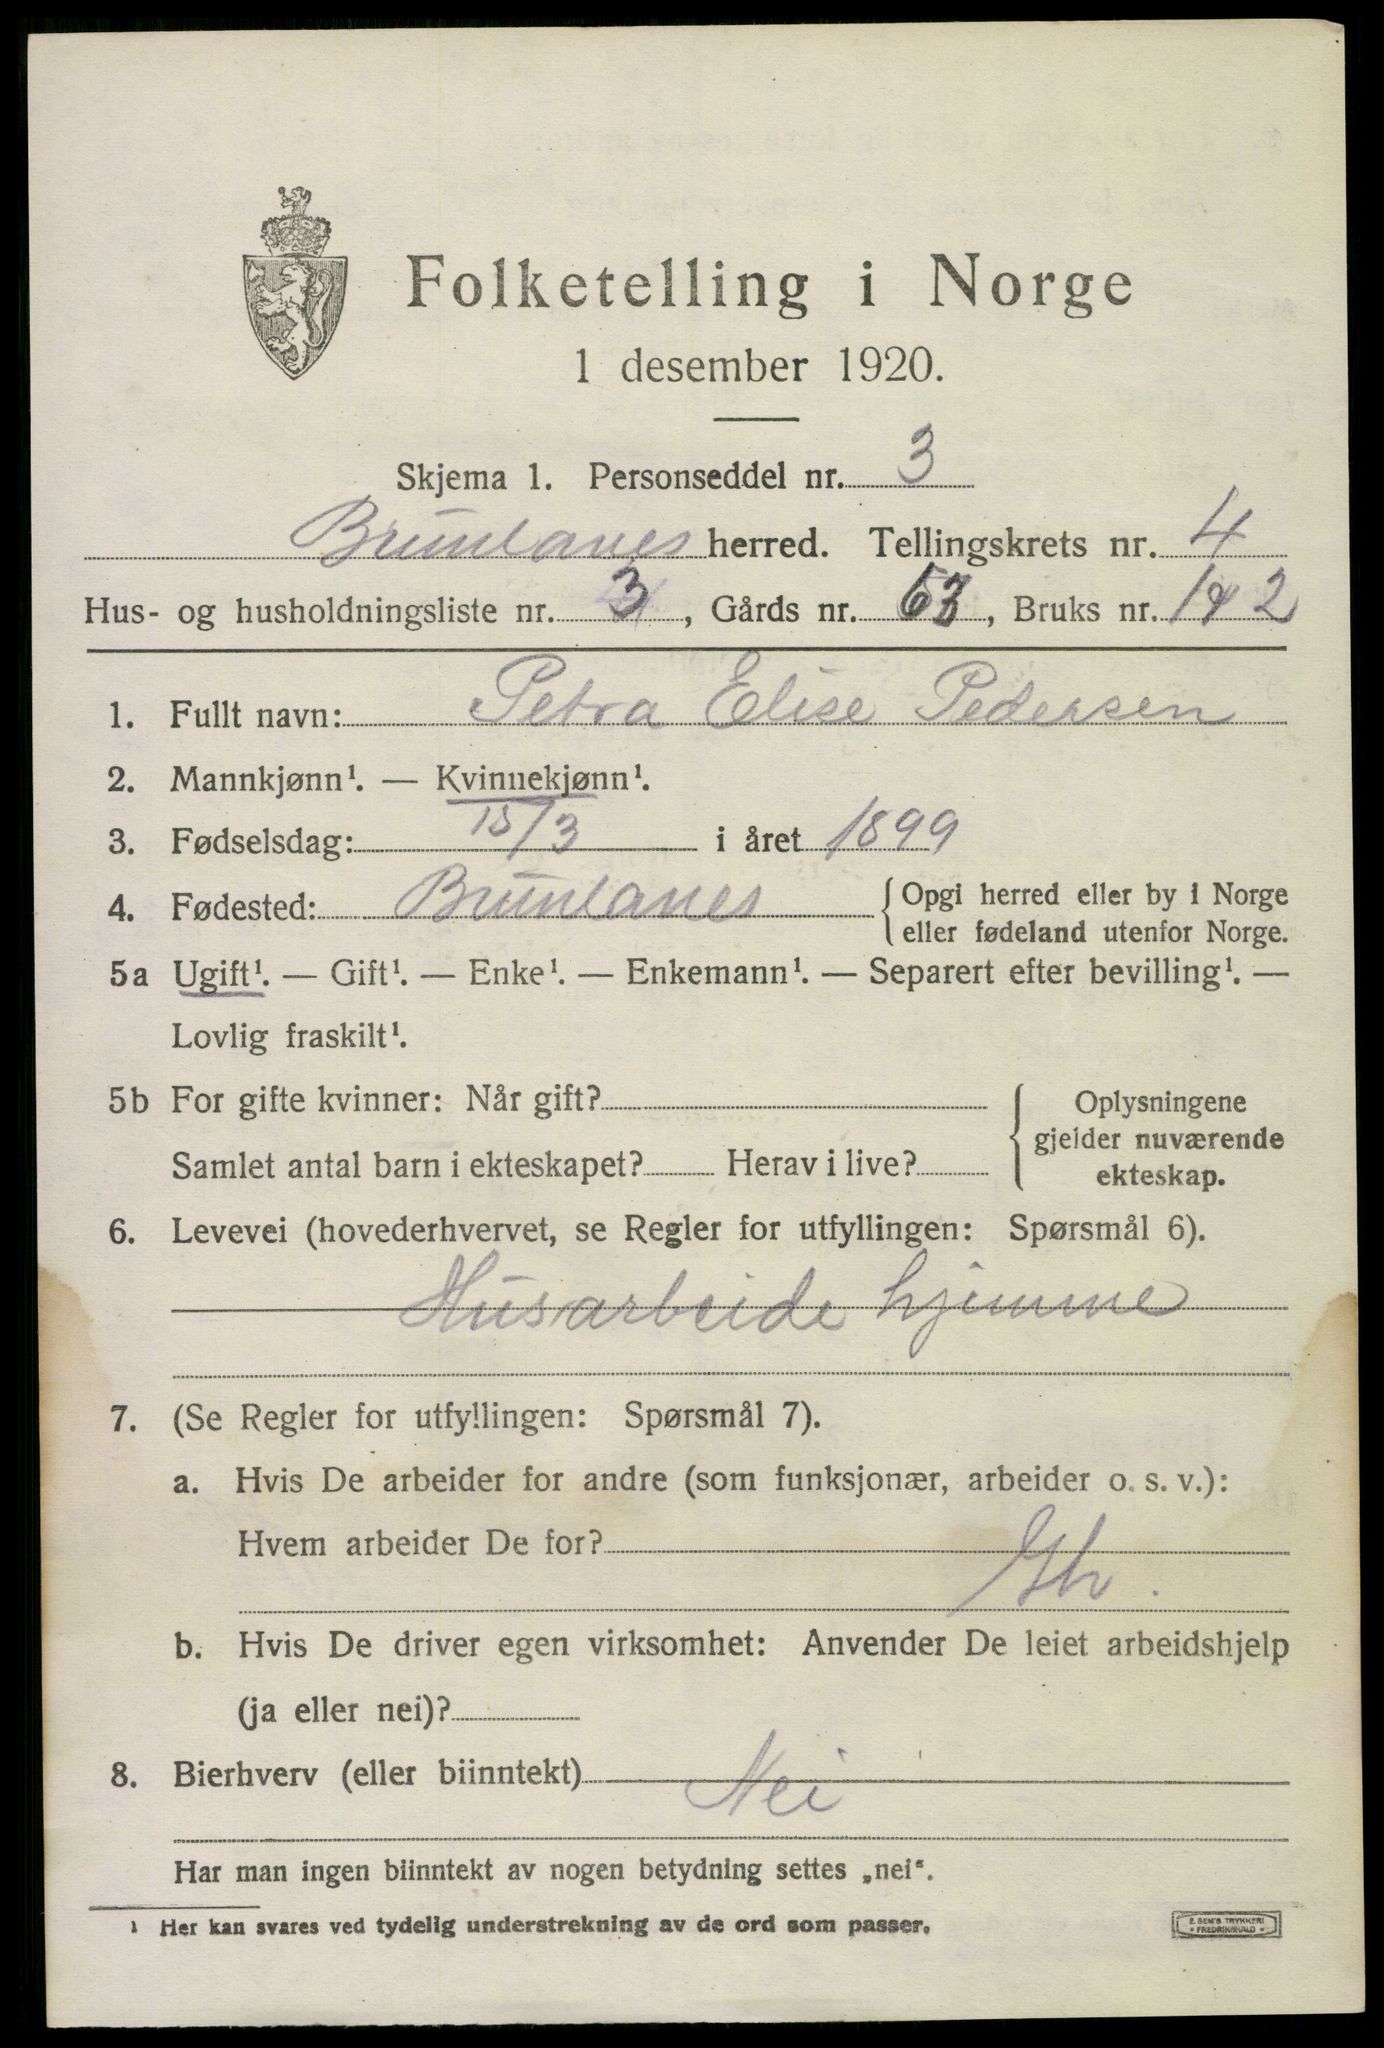 Folketelling i Norge
1 desember 1920.
Skjema 1. Personseddel nr. 3
Brunlanes herred. Tellingskrets nr. 4
Hus- og husholdningsliste nr. 3, Gårds nr. 53, Bruks nr. 1 & 2
1. Fullt navn: Petra Elise Pedersen
2. Mannkjønn¹. — Kvinnekjønn¹.
3. Fødselsdag: 15/3 i året 1899
4. Fødested: Brunlanes { Opgi herred eller by i Norge
eller fødeland utenfor Norge.
5a Ugift¹. — Gift¹. — Enke¹. — Enkemann¹. — Separert efter bevilling¹. —
Lovlig fraskilt¹.
5b For gifte kvinner: Når gift? { Oplysningene
gjelder nuværende
Samlet antal barn i ekteskapet? Herav i live? ekteskap.
6. Levevei (hovederhvervet, se Regler for utfyllingen: Spørsmål 6).
Husarbeide hjemme
7. (Se Regler for utfyllingen: Spørsmål 7).
a. Hvis De arbeider for andre (som funksjonær, arbeider o. s. v.):
Hvem arbeider De for?
b. Hvis De driver egen virksomhet: Anvender De leiet arbeidshjelp
(ja eller nei)?
8. Bierhverv (eller biinntekt) Nei
Har man ingen biinntekt av nogen betydning settes „nei“.
¹ Her kan svares ved tydelig understrekning av de ord som passer.
E. SEM'S TRYKKERI
• FREDRIKSHALD •